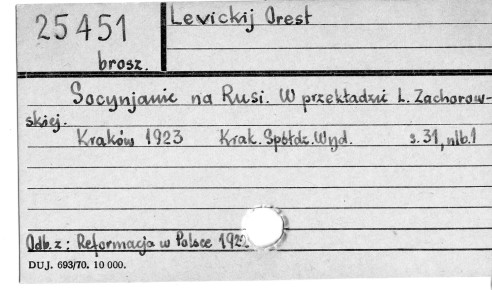 25451
brosz.
Levickij Orest
Socynjanie na Rusi. W przekładzie L. Zachorow-
skiej.
Kraków 1923 Krak. Spółdz. Wyd. s. 31, nlb. 1
Odb. z: Reformacja w Polsce 1922
DUJ. 693/70. 10 000.